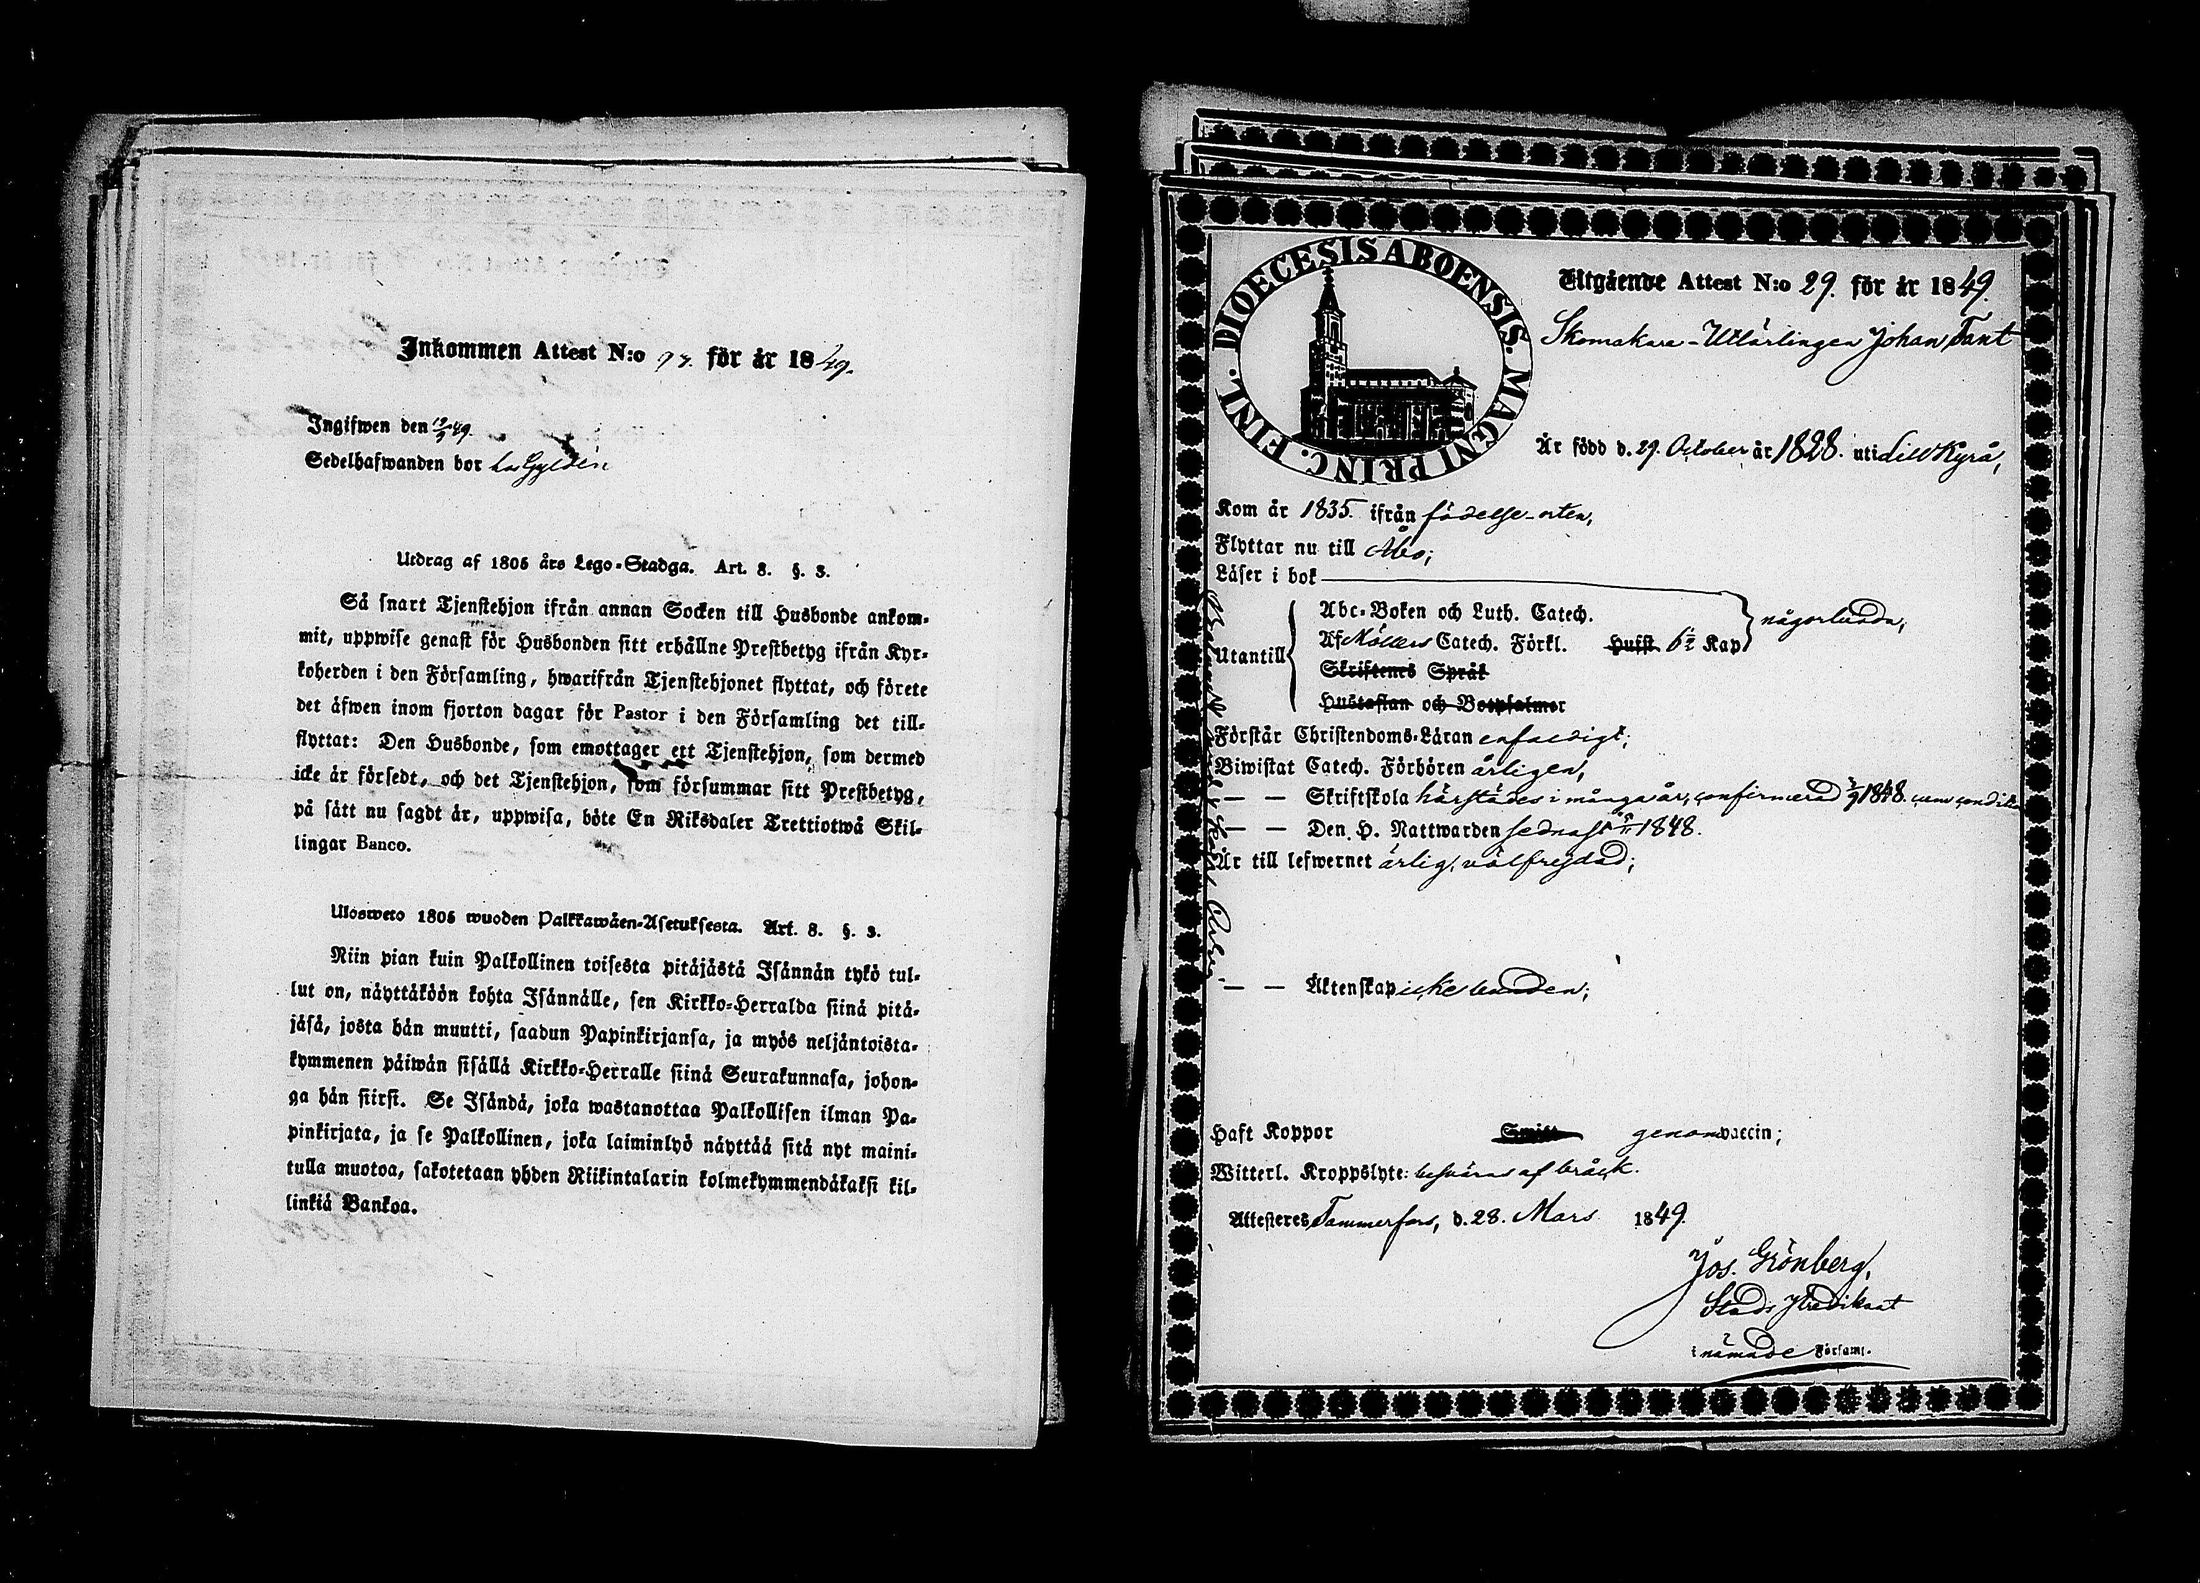 Inkommen Attest N:o 97. för år 1849.
Ingifwen den 19/9 49.
Sedelhafwanden bor hos Gyldén
Utdrag af 1805 års Lego-Stadga. Art. 8. §. 3.
Så snart Tjenstehjon ifrån annan Socken till Husbonde ankom-
mit, uppwise genast för Husbonden sitt erhållne Prestbetyg ifrån Kyr-
koherden i den Församling, hwarifrån Tjenstehjonet flyttat, och förete
det äfwen inom fjorton dagar för Pastor i den Församling det till-
flyttat: Den Husbonde, som emottager ett Tjenstehjon, som dermed
icke är försedt, och det Tjenstehjon, som försummar sitt Prestbetyg,
på sätt nu sagdt är, uppwisa, böte En Riksdaler Trettiotwå Skil-
lingar Banco.
Ulosweto 1805 wuoden Palkkawäen-Asetuksesta. Art. 8. §. 3.
Niin pian kuin Palkollinen toisesta pitäjästä Isännän tykö tul-
lut on, näyttäköön kohta Isännälle, sen Kirkko-Herralda siinä pitä-
jäsä, josta hän muutti, saadun Papinkirjansa, ja myös neljäntoista-
kymmenen päiwän sisällä Kirkko-Herralle siinä Seurakunnasa, johon-
ga hän siirsi. Se Isändä, joka wastanottaa Palkollisen ilman Pa-
pinkirjata, ja se Palkollinen, joka laiminlyö näyttää sitä nyt maini-
tulla muotoa, sakotetaan yhden Riikintalarin kolmekymmendäkaksi kil-
linkiä Bankoa.
DIOECESIS ABOENSIS. MAGNI PRINC. FINL.
Utgående Attest N:o 29. för år 1849.
Skomakare-Utlärlingen Johan Tant
Är född d. 29. October år 1828. uti Lillkyrå,
Kom år 1835. ifrån födelse-orten,
Flyttar nu till Åbo;
Läser i bok
Utantill
Abc-Boken och Luth. Catech.
Af Möllers Catech. Förkl. Hufst. 6 Kap
någorlunda;
Skriftenes Språk
Hustaflan och Botpsalmer
Förstår Christendoms-Läran enfaldigt;
Biwistat Catech. Förhören årligen,
— — Skriftskola härstädes i många år, confirmerad 3/9 1848.
— — Den H. Nattwarden sednast 5/11 1848.
Är till lefwernet ärlig, välfrejdad;
— — Äktenskap icke bunden;
Haft Koppor Smitt. genom vaccin;
Witterl. Kroppslyte: besväras af bråck.
Attesteres Tammerfors, d. 28. Mars 1849.
Jos. Grönberg,
Stads Predikant
i nämnde Församl.